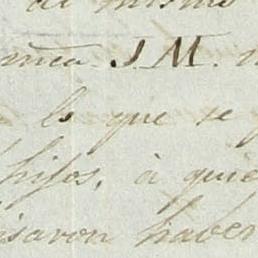 de mismo
J. M.
lo que se
hijos, à quie
isaron haver